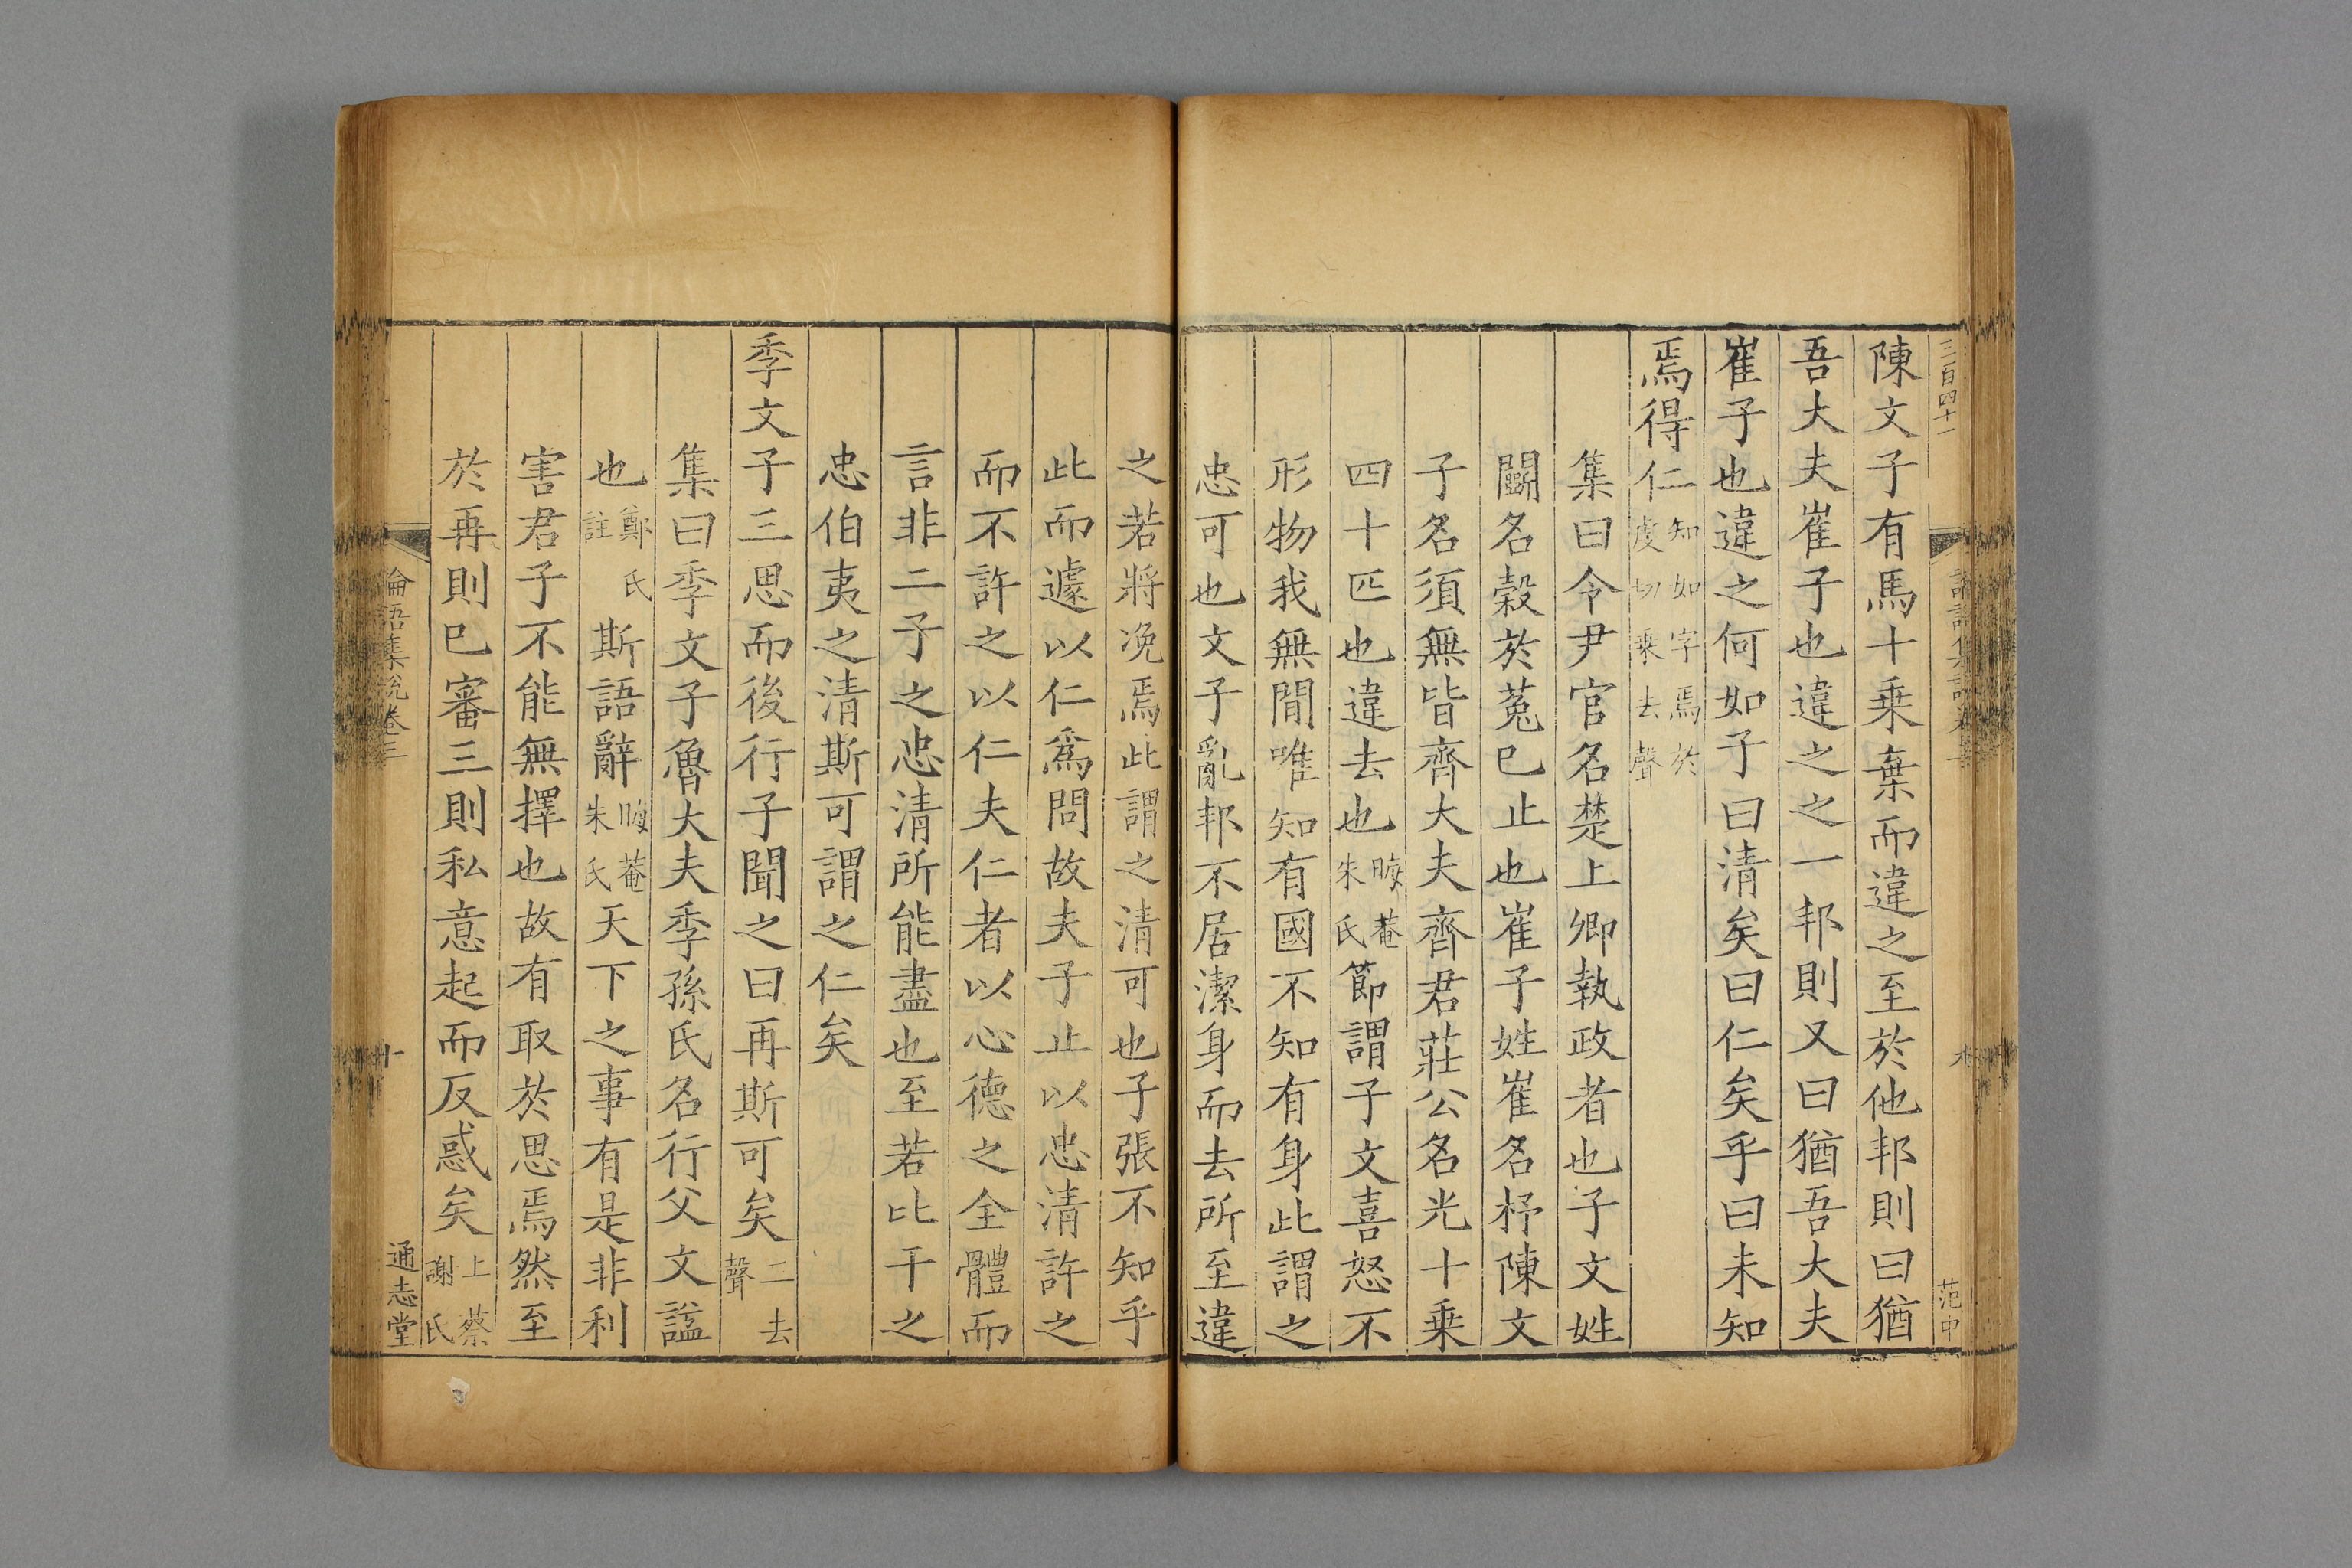 三百四十一
范中
陳文子有馬十乗棄而違之至於他邦則曰猶
吾大夫崔子也違之之一邦則又曰猶吾大夫
崔子也違之何如子曰清矣曰仁矣乎曰未知
焉得仁知如字焉於虔切乗去聲
集曰令尹官名楚上卿執政者也子文姓
鬭名穀於菟已止也崔子姓崔名杼陳文
子名須無皆齊大夫齊君莊公名光十乗
四十匹也違去也晦菴朱氏節謂子文喜怒不
形物我無間唯知有國不知有身此謂之
忠可也文子亂邦不居潔身而去所至違
之若將浼焉此謂之清可也子張不知乎
此而遽以仁爲問故夫子止以忠清許之
而不許之以仁夫仁者以心德之全體而
言非二子之忠清所能盡也至若比干之
忠伯夷之清斯可謂之仁矣
季文子三思而後行子聞之曰再斯可矣二去聲
集曰季文子魯大夫季孫氏名行父文諡
也鄭氏註斯語辭晦菴朱氏天下之事有是非利
害君子不能無擇也故有取於思焉然至
於再則已審三則私意起而反惑矣上蔡謝氏
論語集説卷三
十
通志堂